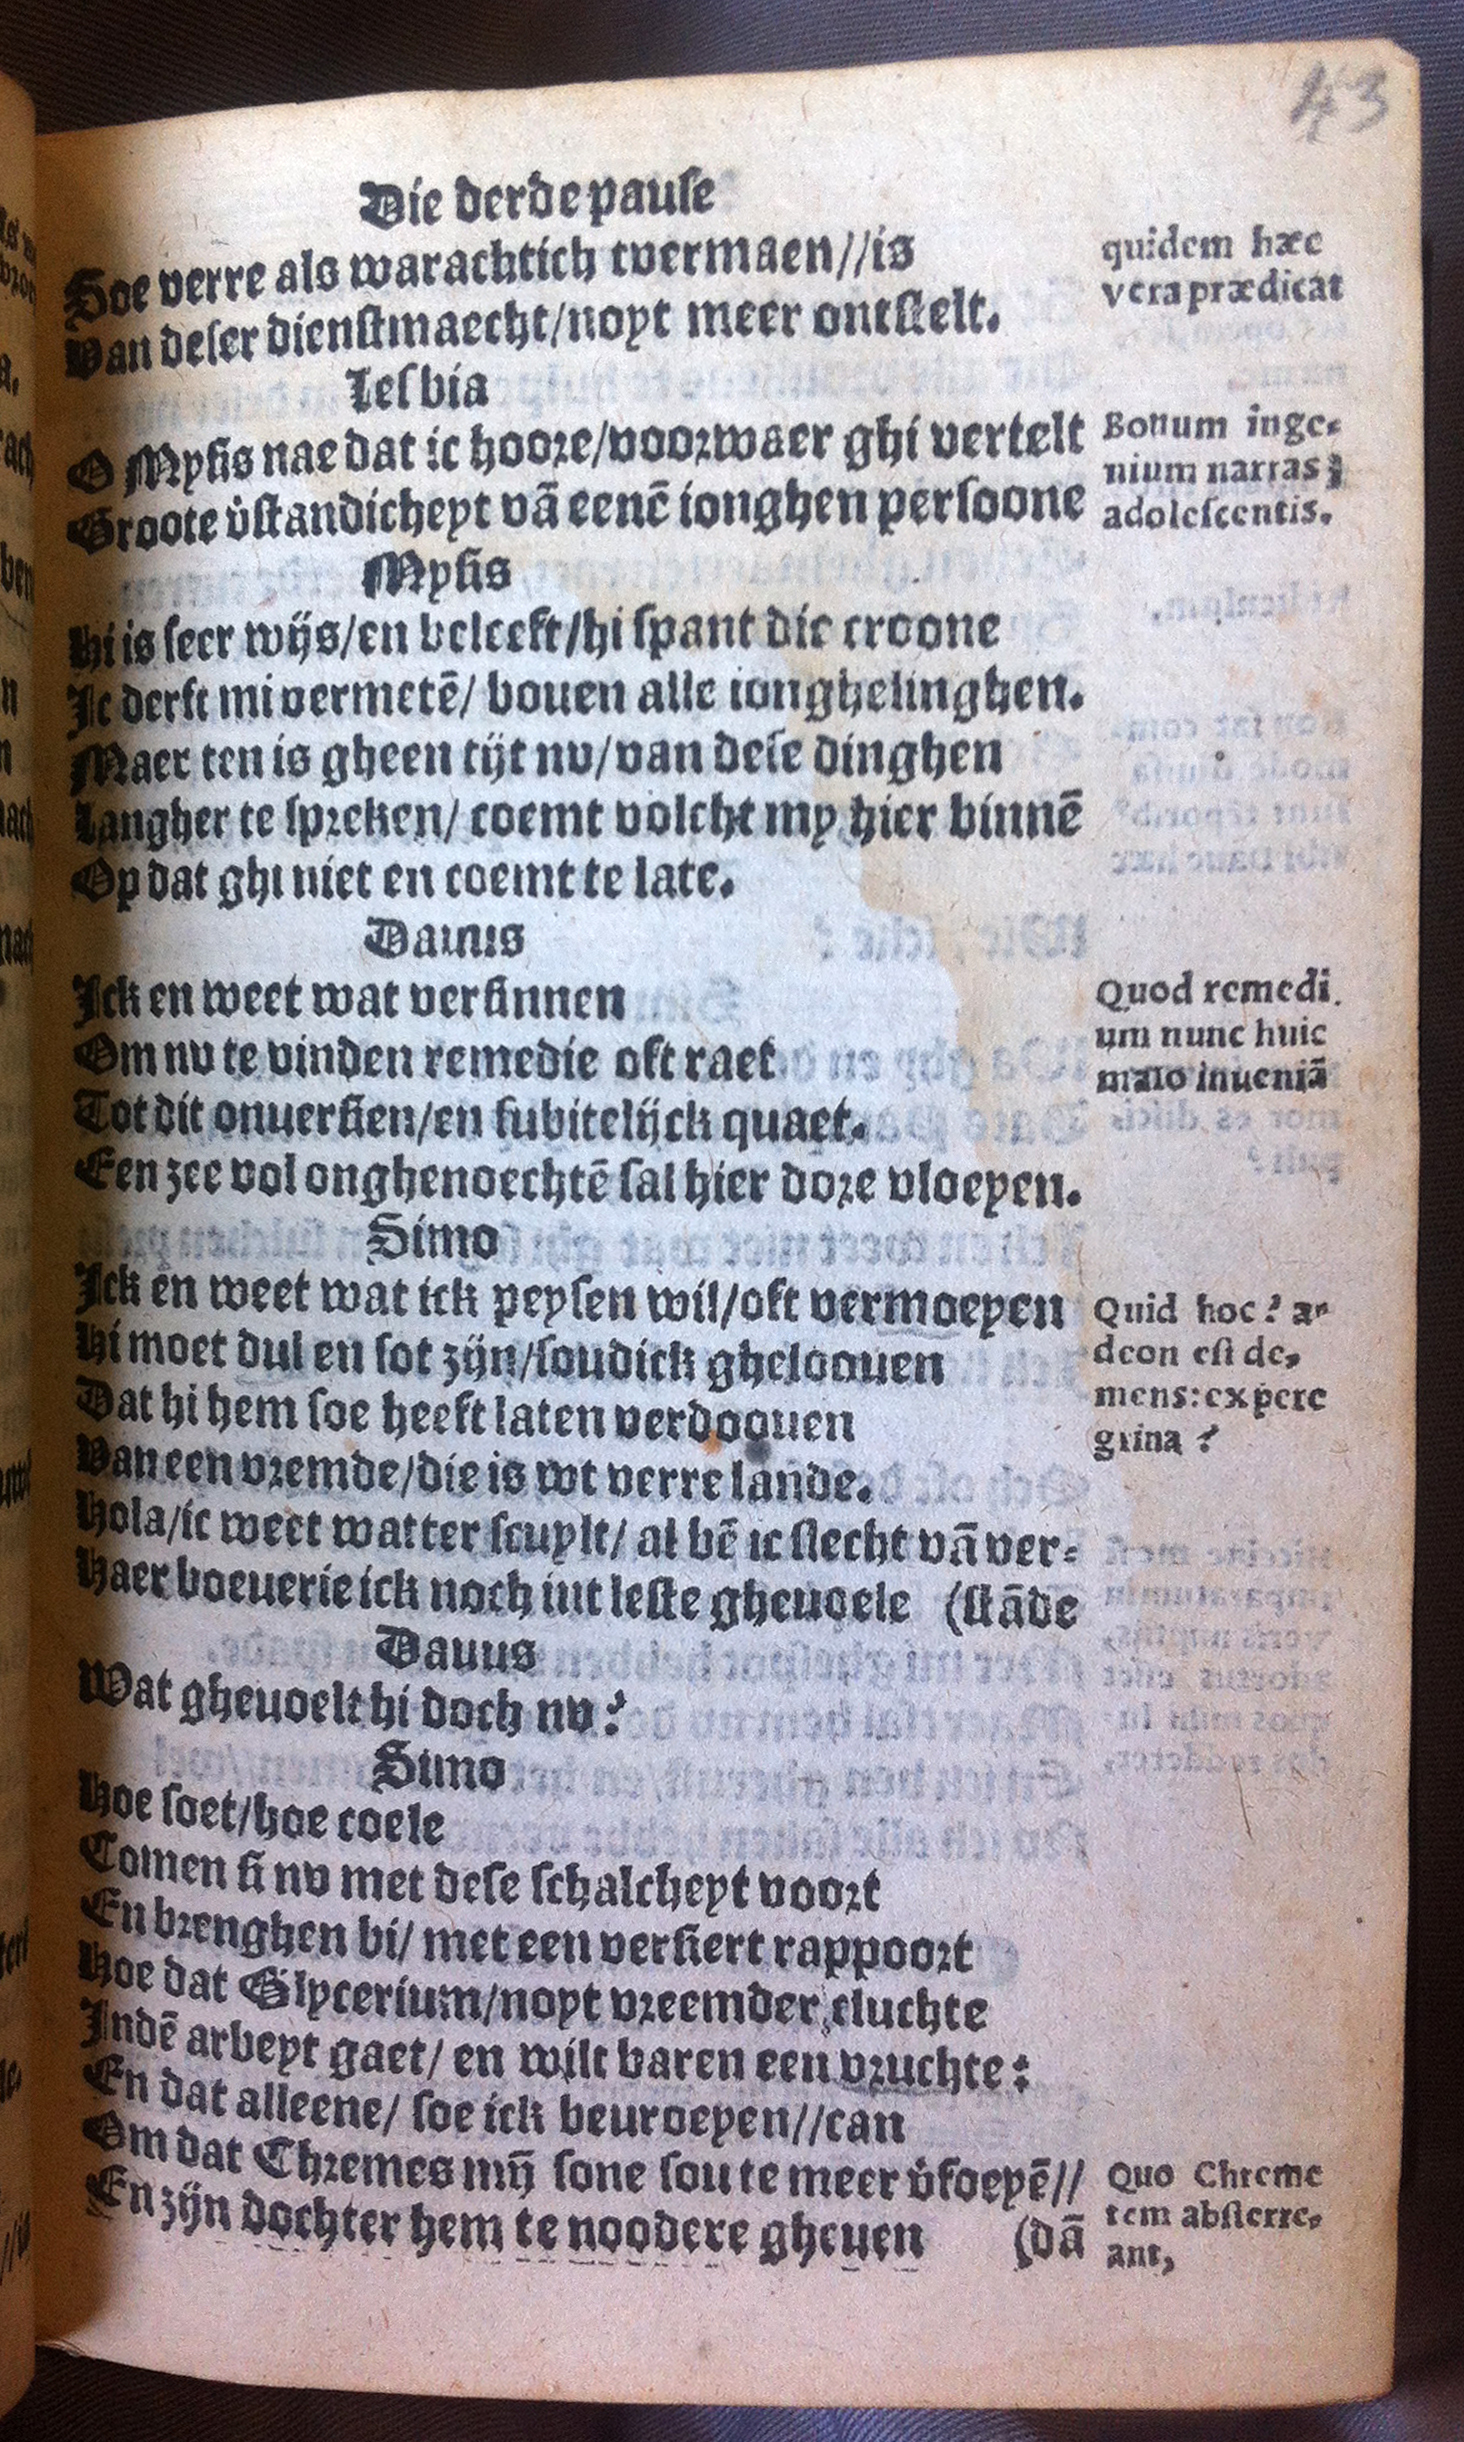 43
Die derde pause
Hoe verre als warachtich tvermaen//is
Van deser dienstmaecht/noyt meer ontstelt.
quidem hæc
vera prædicat
Lesbia
O Mysis nae dat ic hoore/voorwaer ghi vertelt
Groote v̓standicheyt vā eenē ionghen persoone
Bonum inge-
nium narras
adolescentis.
Mysis
Hi is seer wijs/en beleeft/hi spant die croone
Ic derft mi vermetē/ bouen alle ionghelinghen.
Maer ten is gheen tijt nv/van dese dinghen
Langher te spreken/ coemt volcht my hier binnē
Op dat ghi niet en coemt te late.
Dauus
Ick en weet wat versinnen
Om nv te vinden remedie oft raet
Tot dit onuersien/en subitelijck quaet.
Een zee vol onghenoechtē sal hier dore vloeyen.
Quod remedi
um nunc huic
malo inueniā
Simo
Ick en weet wat ick peysen wil/oft vermoeyen
Hi moet dul en sot zijn/soudick gheloouen
Dat hi hem soe heeft laten verdoouen
Van een vremde/die is wt verre lande.
Hola/ic weet watter scuylt/ al bē ic slecht vā ver-
Haer boeuerie ick noch int leste gheuoele (stāde
Quid hoc? a-
deon est de-
mens: ex pere
grina?
Dauus
Wat gheuoelt hi doch nv?
Simo
Hoe soet/hoe coele
Comen si nv met dese schalcheyt voort
En brenghen bi/ met een versiert rappoort
Hoe dat Glycerium/noyt vreemder cluchte
Indē arbeyt gaet/ en wilt baren een vruchte:
En dat alleene/ soe ick beuroeyen//can
Om dat Chremes mij̄ sone sou te meer v̓foeyē//
En zijn dochter hem te noodere gheuen (dā
Quo Chreme
tem absterre-
ant,